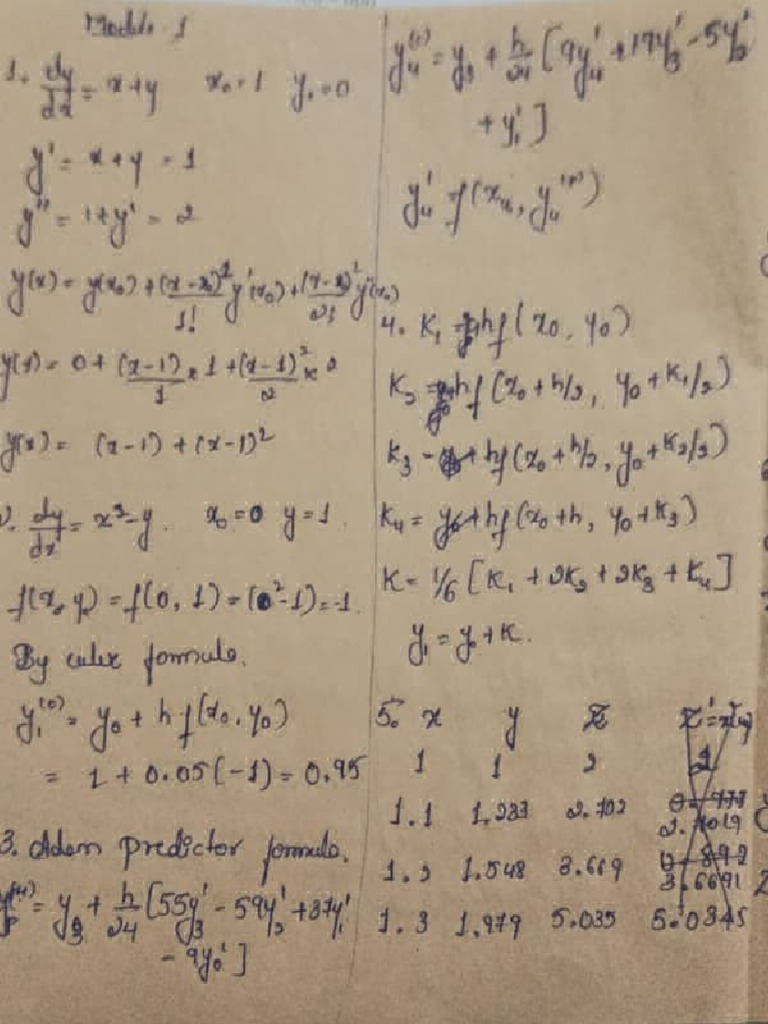 Module 1
1. dy/dx = x+y x₀=1 y₀=0
y' = x+y = 1
y'' = 1+y' = 2
y(x) = y(x₀) + (x-x₀)¹/1! y'(x₀) + (x-x₀)²/2! y''(x₀)
y(x) = 0 + (x-1)/1 × 1 + (x-1)²/2 × 2
y(x) = (x-1) + (x-1)²
2. dy/dx = x²-y x₀=0 y=1
f(x₀, y₀) = f(0, 1) = (0²-1) = -1
By euler formula.
y₁⁽⁰⁾ = y₀ + h f(x₀, y₀)
= 1 + 0.05(-1) = 0.95
3. Adam predictor formula.
y₄⁽ᵖ⁾ = y₃ + h/24 [55y₃' - 59y₂' + 37y₁'
- 9y₀']
y₄⁽ᶜ⁾ = y₃ + h/24 [9y₄' + 19y₃' - 5y₂'
+ y₁']
y₄' = f(x₄, y₄⁽ᵖ⁾)
4. K₁ = hf(x₀, y₀)
K₂ = hf(x₀+h/2, y₀+K₁/2)
K₃ = hf(x₀+h/2, y₀+K₂/2)
K₄ = hf(x₀+h, y₀+K₃)
K = 1/6 [K₁ + 2K₂ + 2K₃ + K₄]
y₁ = y₀+K.
5. x y z
1 1 2
1.1 1.233 2.702
1.2 1.548 3.669
1.3 1.979 5.035 5.0345